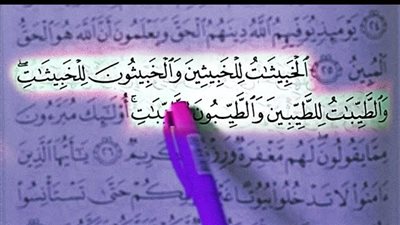 يَوْمَئِذٍ يُوَفِّيهِمُ ٱللَّهُ دِينَهُمُ ٱلْحَقَّ وَيَعْلَمُونَ أَنَّ ٱللَّهَ هُوَ ٱلْحَقُّ
ٱلْمُبِينُ ٢٥ ٱلْخَبِيثَٰتُ لِلْخَبِيثِينَ وَٱلْخَبِيثُونَ لِلْخَبِيثَٰتِ ۖ
وَٱلطَّيِّبَٰتُ لِلطَّيِّبِينَ وَٱلطَّيِّبُونَ لِلطَّيِّبَٰتِ ۚ أُو۟لَٰٓئِكَ مُبَرَّءُونَ
مِمَّا يَقُولُونَ ۖ لَهُم مَّغْفِرَةٌ وَرِزْقٌ كَرِيمٌ ٢٦ يَٰٓأَيُّهَا ٱلَّذِينَ
ءَامَنُوا۟ لَا تَدْخُلُوا۟ بُيُوتًا غَيْرَ بُيُوتِكُمْ حَتَّىٰ تَسْتَأْنِسُوا۟